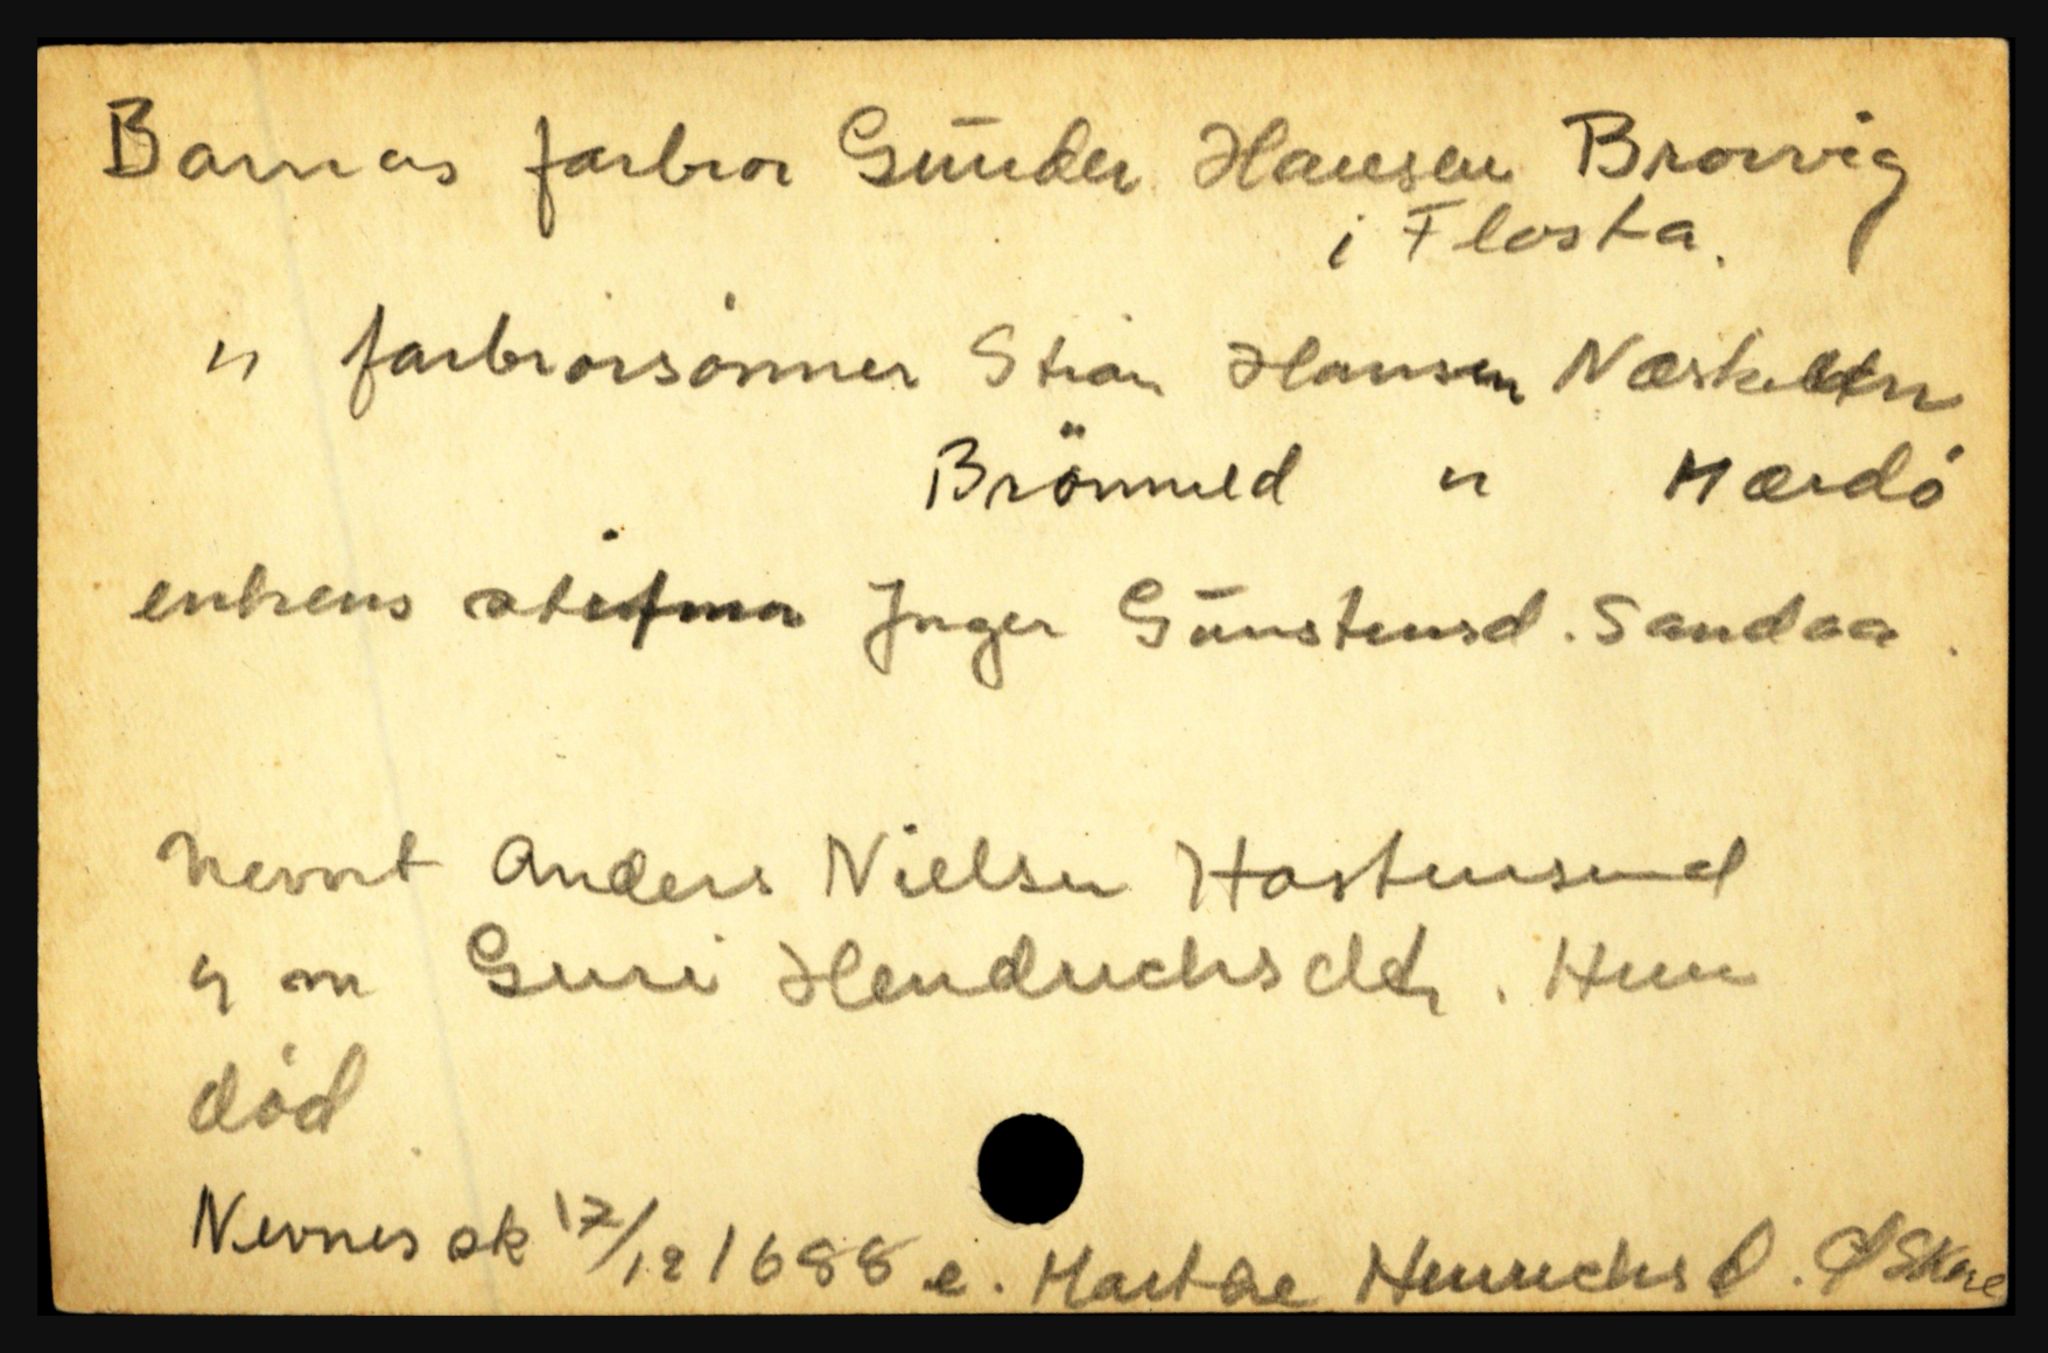 Barnas farbror Gunder Hansen Broovig
i Flosta.
" farbrorsønner Stian Hansen Næskilen
Brönnild " Mærdö
enkens stefmor Inger Gunstensd. Sandaa.
Nevnt Anders Nielsen Hastensund
g m Guri Hendrichsdtr. Hun
død
Nevnes sk 17/12 1688 e. Marthe Henrichsd. Ø Skare